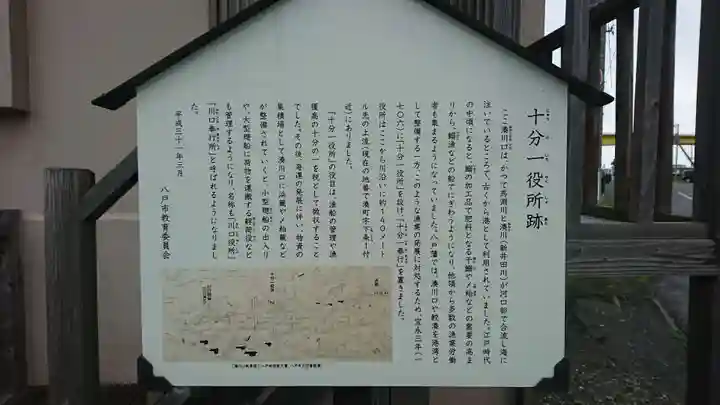 十分一役所跡
ここ湊川口は、かつて馬淵川と湊川(新井田川)が河口部で合流し海に
注いでいるところで、古くから港として利用されていました。江戸時代
の中頃になると、鰯の加工品で肥料となる干鰯や〆粕などの需要の高ま
りから、鰯漁などの船でにぎわうようになり、他領から多数の漁業労働
者も集まるようになっていました。八戸藩では、湊川口や鮫湊を港湾と
して整備する一方、このような漁業の発展に対処するため、宝永三年(一
七〇六)に「十分一役所」を設け、「十分一奉行」を置きました。
役所はここから川沿いに約140メート
ル先の上流(現在の地番で湊町字下条1付
近)にありました。
「十分一役所」の役目は、漁船の管理や漁
獲高の十分の一を税として徴収すること
でした。その後、海運の発展に伴い、物資の
集積場として湊川口に浜蔵や〆粕蔵など
が整備されていくと、小型廻船の出入り
や、大型廻船に荷物を運搬する艀荷役など
も管理するようになり、名称も「川口役所」
「川口奉行所」と呼ばれるようになりまし
た。
平成三十一年三月
八戸市教育委員会